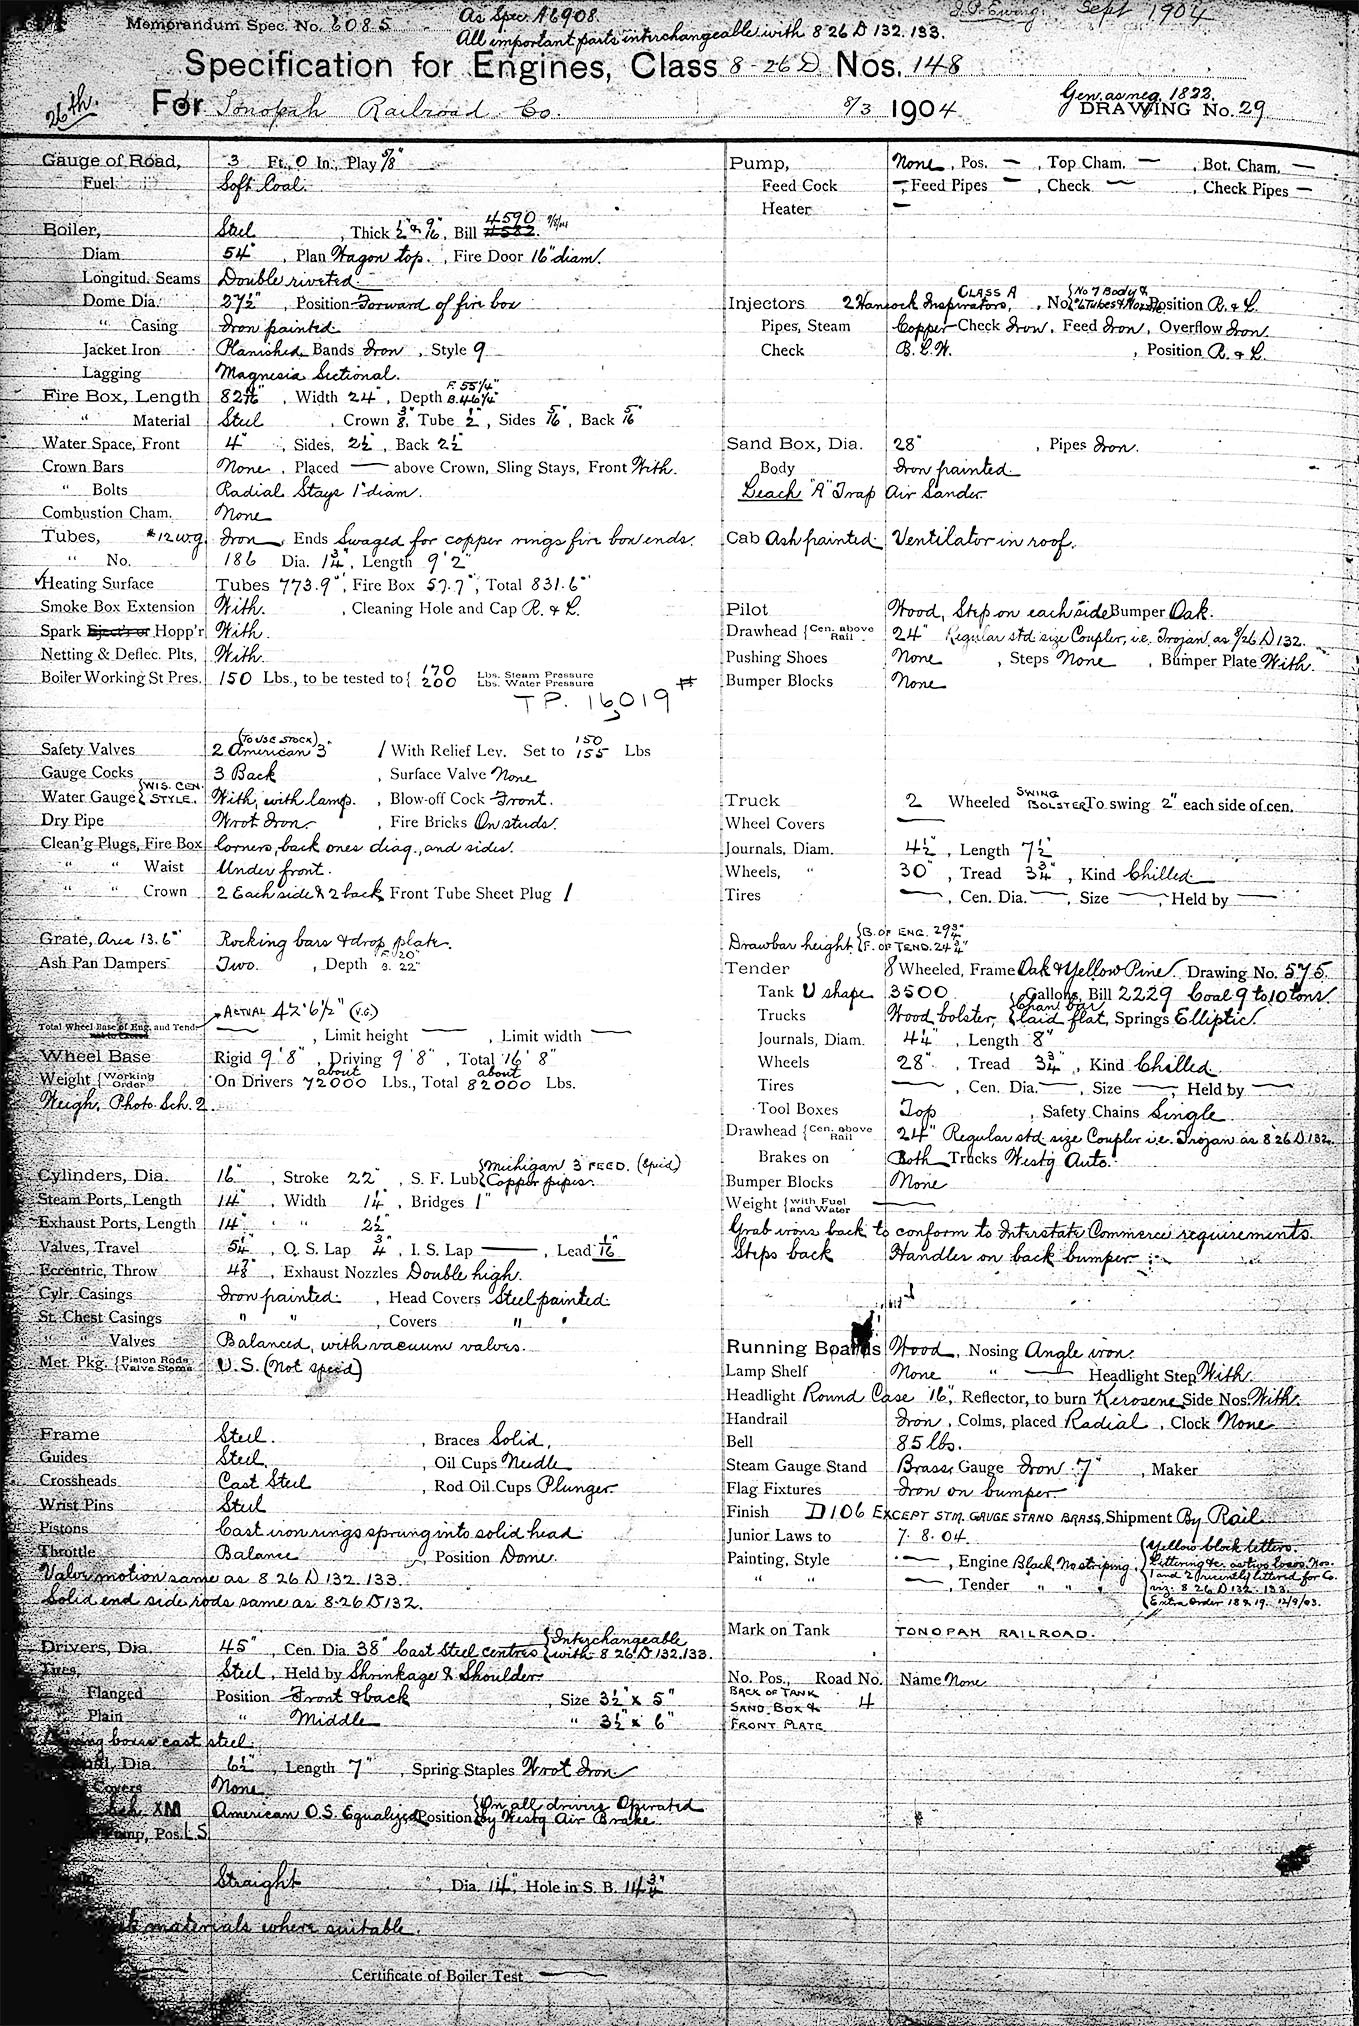 Memorandum Spec. No. 6085
As Spec. A6908.
J.P. Ewing. Sept 1904
All important parts interchangeable with 8 26 D 132. 133.
Specification for Engines, Class 8-26 D Nos. 148
26th.
For Tonopah Railroad Co. 8/3 1904
Gen. as neg. 1822.
DRAWING No. 29
Gauge of Road, 3 Ft. 0 In., Play 5/8"
Fuel Soft Coal.
Boiler, Steel, Thick 1/2" & 9/16", Bill 4590
Diam. 54", Plan Wagon top., Fire Door 16" diam.
Longitud. Seams Double riveted.
Dome Dia. 27 1/2", Position Forward of fire box
" Casing Iron painted
Jacket Iron Planished, Bands Iron, Style 9
Lagging Magnesia Sectional.
Fire Box, Length 82 1/16", Width 24", Depth F. 55 1/4" B. 46 1/4"
" Material Steel, Crown 3/8", Tube 1/2", Sides 5/16", Back 5/16"
Water Space, Front 4", Sides, 2 1/2", Back 2 1/2"
Crown Bars None, Placed — above Crown, Sling Stays, Front With.
" Bolts Radial Stays 1" diam.
Combustion Cham. None
Tubes, #12 W.g. Iron, Ends Swaged for copper rings fire box ends.
" No. 186 Dia. 1 3/4", Length 9' 2"
✓Heating Surface Tubes 773.9□', Fire Box 57.7□', Total 831.6□'
Smoke Box Extension With., Cleaning Hole and Cap R. & L.
Spark Eject'r or Hopp'r With.
Netting & Deflec. Plts, With.
Boiler Working St Pres. 150 Lbs., to be tested to { 170 Lbs. Steam Pressure
200 Lbs. Water Pressure
T P. 16,019 #
Safety Valves 2 American 3" (TO USE STOCK) 1 With Relief Lev. Set to 150 155 Lbs
Gauge Cocks 3 Back, Surface Valve None
Water Gauge {WIS. CEN. STYLE. With, with lamp., Blow-off Cock Front.
Dry Pipe Wrot Iron., Fire Bricks On studs.
Clean'g Plugs, Fire Box Corners, back ones diag., and sides.
" " Waist Under front.
" " Crown 2 Each side & 2 back Front Tube Sheet Plug 1
Grate, Area 13.6□' Rocking bars & drop plate.
Ash Pan Dampers Two., Depth F. 20" B. 22"
ACTUAL 42' 6 1/2" (V.G.)
Total Wheel Base of Eng. and Tend. —, Limit height —, Limit width —
Wheel Base Rigid 9' 8", Driving 9' 8", Total 16' 8"
Weight {Working Order On Drivers about 72000 Lbs., Total about 82000 Lbs.
Weigh, Photo. Sch. 2.
Cylinders, Dia. 16", Stroke 22", S. F. Lub. {Michigan 3 FEED. (Spec'd)
Copper pipes.
Steam Ports, Length 14", Width 1 1/4", Bridges 1"
Exhaust Ports, Length 14", " 2 1/2"
Valves, Travel 5 1/4", O. S. Lap 3/4", I. S. Lap —, Lead 1/16"
Eccentric, Throw 4 7/8", Exhaust Nozzles Double high.
Cylr. Casings Iron painted., Head Covers Steel painted.
St. Chest Casings " ", Covers " "
" " Valves Balanced, with vacuum valves.
Met. Pkg. {Piston Rods Valve Stems U. S. (Not spec'd)
Frame Steel., Braces Solid,
Guides Steel., Oil Cups Needle
Crossheads Cast Steel, Rod Oil Cups Plunger
Wrist Pins Steel
Pistons Cast iron rings sprung into solid head
Throttle Balance, Position Dome.
Valve motion same as 8 26 D 132. 133.
Solid end side rods same as 8-26 D 132.
Drivers, Dia. 45", Cen. Dia. 38" Cast Steel centres {Interchangeable
with 8 26 D 132.133.
Tires, Steel, Held by Shrinkage & Shoulder
" Flanged Position Front & back, Size 3 1/2" x 5"
" Plain " Middle " 3 1/2" x 6"
boxes cast steel.
Dia. 6 1/2", Length 7", Spring Staples Wrot Iron
Covers None.
XM American O.S. Equalized, Position {On all drivers Operated
by Westg Air Brake.
Pump, Pos. L S
Straight, Dia. 14", Hole in S. B. 14 3/4"
materials where suitable.
Certificate of Boiler Test —
Pump, None, Pos. —, Top Cham. —, Bot. Cham. —
Feed Cock —, Feed Pipes —, Check —, Check Pipes —
Heater —
Injectors 2 Hancock Inspirators, CLASS A, No. {No 7 Body & Tubes & Nozzle. Position R. & L.
Pipes, Steam Copper Check Iron, Feed Iron, Overflow Iron.
Check B. L. W., Position R. & L.
Sand Box, Dia. 28", Pipes Iron.
Body Iron painted.
Leach "A" Trap Air Sander
Cab Ash painted. Ventilator in roof.
Pilot Wood, Step on each side Bumper Oak.
Drawhead {Cen. above Rail 24" Regular std size Coupler, i.e. Trojan as 8/26 D 132.
Pushing Shoes None, Steps None, Bumper Plate With.
Bumper Blocks None
Truck 2 Wheeled SWING BOLSTER To swing 2" each side of cen.
Wheel Covers —
Journals, Diam. 4 1/2", Length 7 1/2"
Wheels, " 30", Tread 3 3/4", Kind Chilled.
Tires —, Cen. Dia. —, Size —, Held by —
Drawbar height {B. OF ENG. 29 3/4"
F. OF TEND. 24 3/4"
Tender 8 Wheeled, Frame Oak & Yellow Pine. Drawing No. 575.
Tank U shape 3500, Gallons, Bill 2229 Coal 9 to 10 tons.
Trucks Wood bolster, {Chan. bar laid flat, Springs Elliptic.
Journals, Diam. 4 1/4", Length 8"
Wheels 28", Tread 3 3/4", Kind Chilled.
Tires —, Cen. Dia. —, Size —, Held by —
Tool Boxes Top, Safety Chains Single
Drawhead {Cen. above Rail 24" Regular std. size Coupler i.e. Trojan as 8 26 D 132.
Brakes on Both Trucks Westg Auto.
Bumper Blocks None
Weight {with Fuel and Water —
Grab irons back to conform to Interstate Commerce requirements.
Steps back Handles on back bumper.
Running Boards Wood, Nosing Angle iron.
Lamp Shelf None " — Headlight Step With.
Headlight Round Case 16", Reflector, to burn Kerosene, Side Nos. With.
Handrail Iron, Colms, placed Radial, Clock None
Bell 85 lbs.
Steam Gauge Stand Brass, Gauge Iron 7", Maker
Flag Fixtures Iron on bumper.
Finish D106 EXCEPT STM. GAUGE STAND BRASS. Shipment By Rail
Junior Laws to 7. 8. 04.
Painting, Style —, Engine Black, No striping. {Yellow block letters.
" " —, Tender " " " Lettering &c. as two locos. Nos.
1 and 2 recently lettered for Co.
viz. 8 26 D 132. 133.
Extra Order 18 & 19. 12/9/03.
Mark on Tank TONOPAH RAILROAD.
No. Pos., Road No. Name None
BACK OF TANK
SAND BOX & 4
FRONT PLATE.